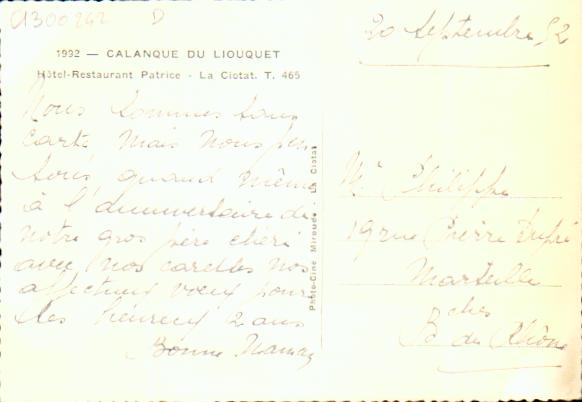 A300242 D
1992 — CALANQUE DU LIOUQUET
Hôtel-Restaurant Patrice - La Ciotat. T. 465
Nous sommes sans
carte mais nous pen
sons quand même
à l'anniversaire de
notre gros père chéri
avec nos caresses nos
affectueux vœux pour
les heureux 2 ans
Bonne Maman
Photo-Ciné Mireude - La Ciotat
20 Septembre 52
Mr Philippe
19 rue Pierre Dupré
Marseille
Bches du Rhône